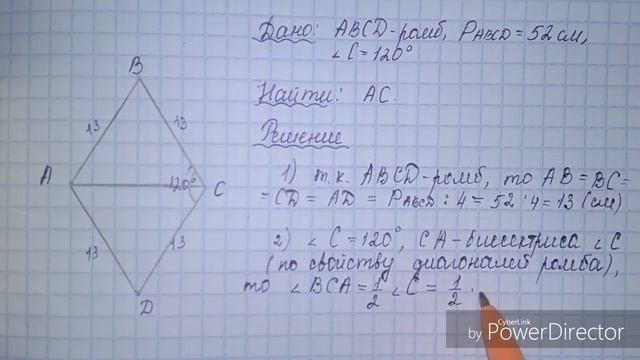 Дано: ABCD-ромб, PABCD = 52 см,
∠C = 120°
Найти: AC.
Решение
1) т.к. ABCD-ромб, то AB = BC =
= CD = AD = PABCD : 4 = 52 : 4 = 13 (см)
2) ∠C = 120°, CA - биссектриса ∠C
(по свойству диагоналей ромба),
то ∠BCA = 1/2 ∠C = 1/2 ·
B
13 13
A 120° C
13 13
D
CyberLink
by PowerDirector